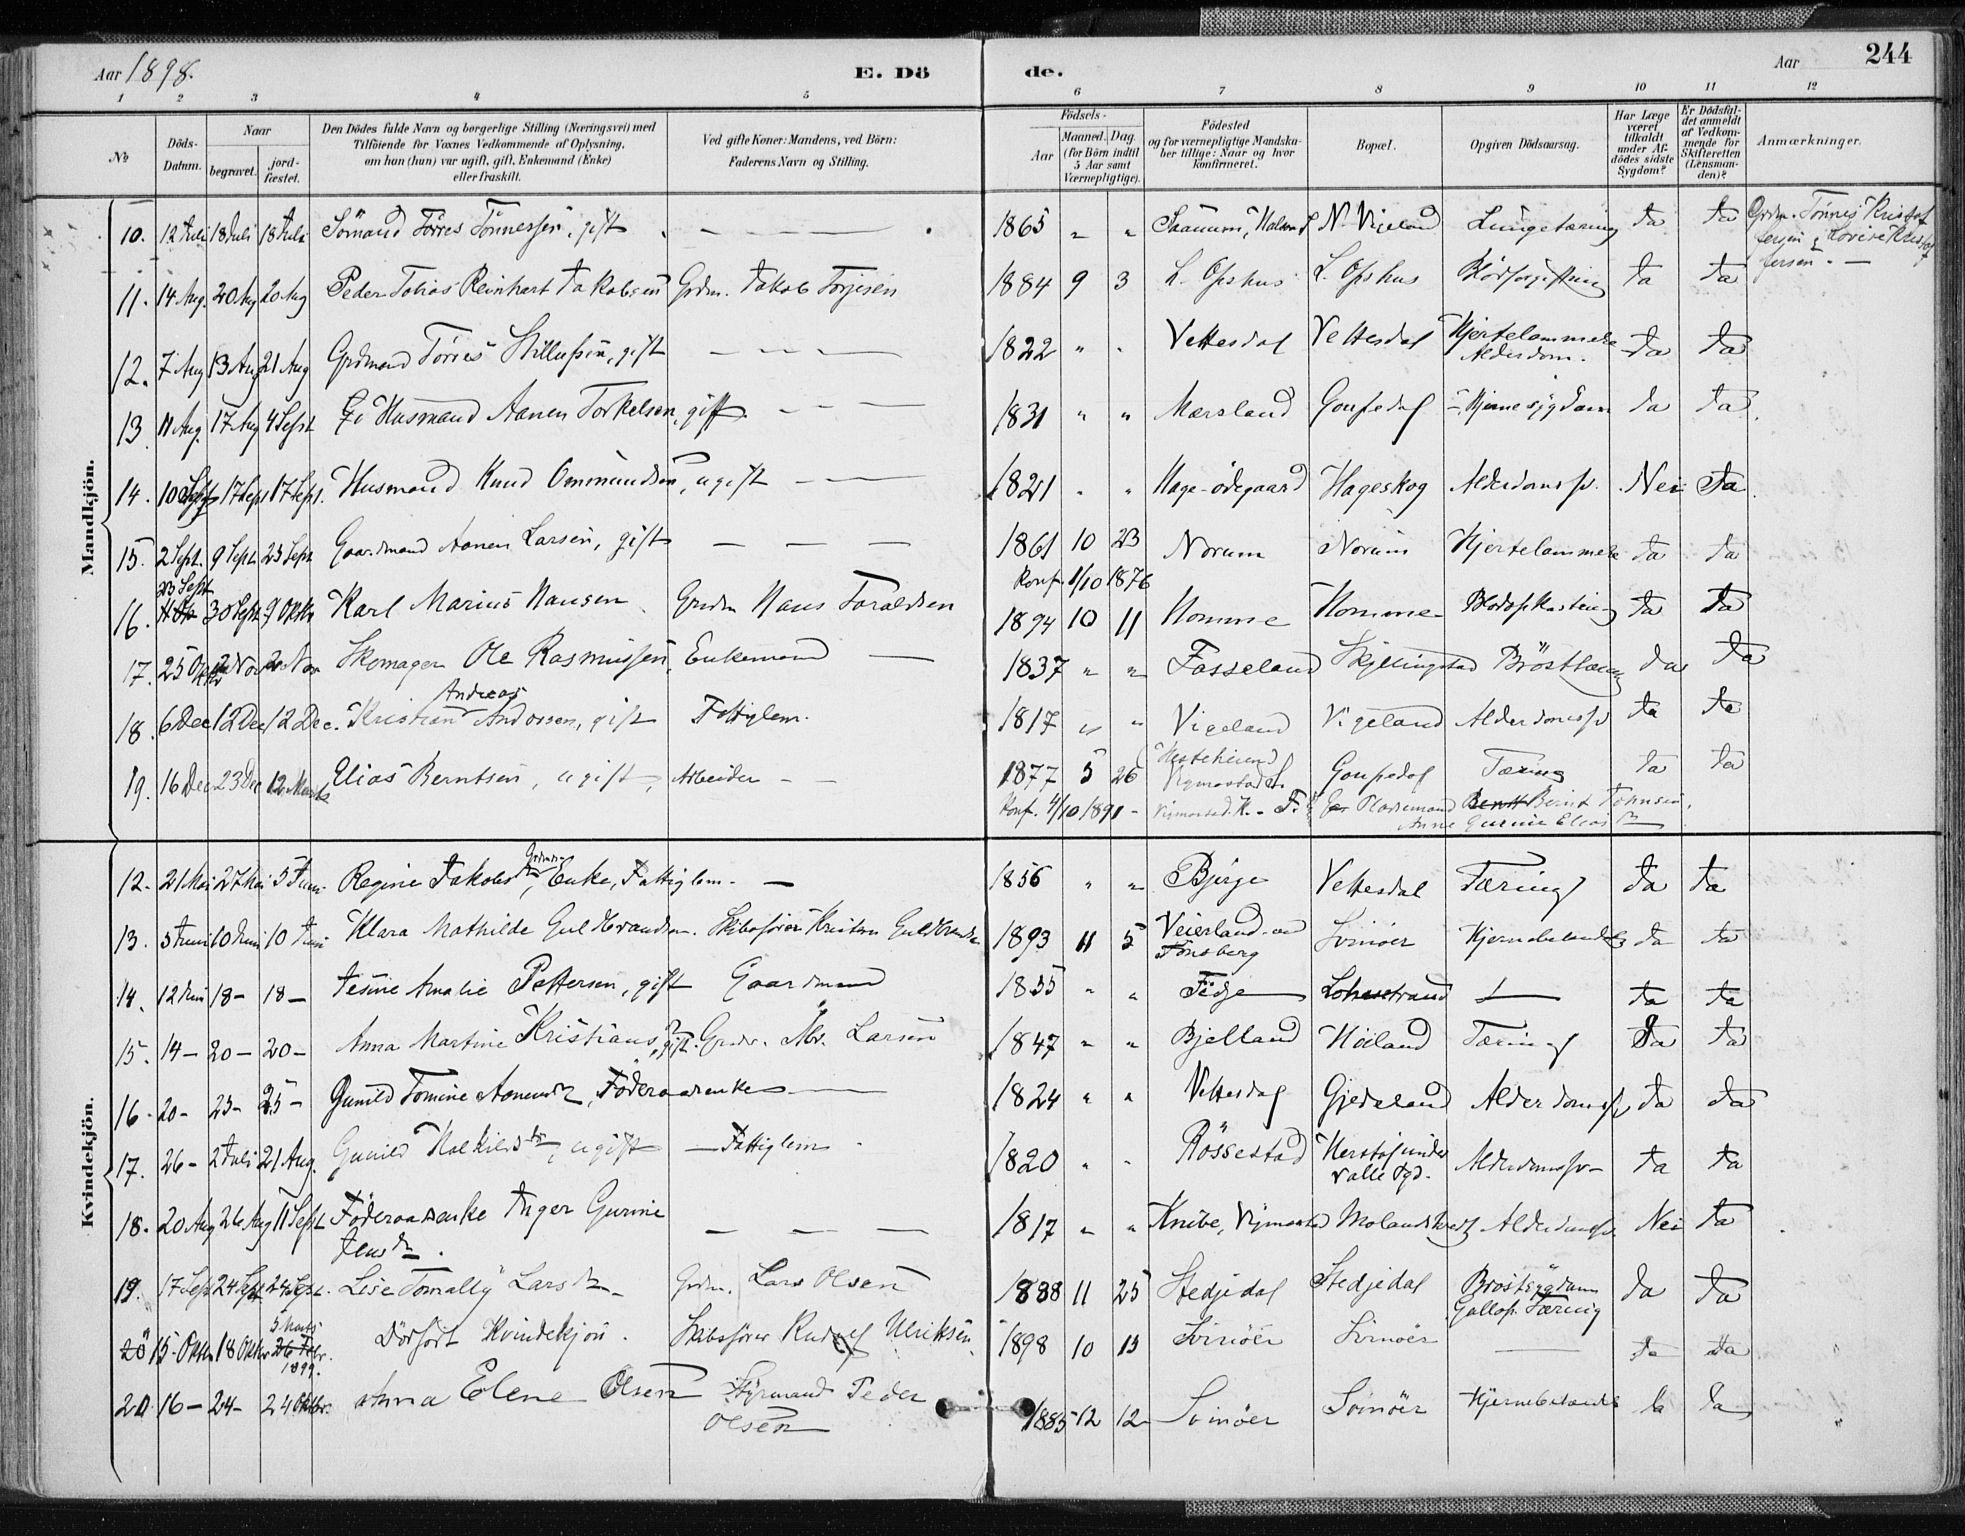 Aar 1898. E. Dö
de. Aar 244
1 2 3 4 5 6 7 8 9 10 11 12
No
Döds-Datum.
Naar
begravet.
jord-fæstet.
Den Dödes fulde Navn og borgerlige Stilling (Næringsvei) med
Tilföiende for Voxnes Vedkommende af Oplysning,
om han (hun) var ugift, gift, Enkemand (Enke)
eller fraskilt.
Ved gifte Koner: Mandens, ved Börn:
Faderens Navn og Stilling.
Födsels-
Aar
Maaned. Dag.
(for Börn indtil
5 Aar samt
Værnepligtige).
Födested
og for værnepligtige Mandska-
ber tillige: Naar og hvor
konfirmeret.
Bopæl.
Opgiven Dödsaarsag.
Har Læge
været
tilkaldt
under Af-
dödes sidste
Sygdom?
Er Dödsfal-
det anmeldt
af Vedkom-
mende for
Skifteretten
(Lensman-
den)?
Anmærkninger.
Mandkjön.
10. 12 Juli 18 Juli 18 Juli Sömand Törres Tönnessen, gift 1865 " " N. Vigeland Lungetæring Ja Ja Grdm. Tönnes Kristof
fersen
fersen. —
11. 14 Aug. 20 Aug 20 Aug Peder Tobias Reinhart Jakobsen Grdm. Jakob Torjesen 1884 9 3 L. Opshus L. Opshus Blodforgiftning Ja Ja
12. 7 Aug 13 Aug 21 Aug Grdmand Törres gift 1822 " " Vettesdal Vettesdal Hjertelammelse Ja Ja
Alderdom.
13 11 Aug. 17 Aug 4 Sept Husmand Aanen Torkelsen, gift 1831 " " Mersland Goupedal Hjernesygdom Ja Ja
14. 10 Sept 17 Sept 17 Sept. Husmand Knud Ommundsen, ugift 1821 " " Hage-ödegaard Hageskog Alderdomssv. Nei Ja
15. 2 Sept. 9 Sept 25 Sept Gaardmand Aanen Larsen, gift 1861 10 23 Norum Norum Hjertelammelse Ja Ja
Konf. 1/10 1876
16. 23 Sept 30 Sept 9 Oktbr Karl Marius Hansen Grdm Hans Toraldsen 1894 10 11 Homme Homme Blodspytning Ja Ja
17. 25 Oktbr 2 Nov 20 Nov Skomager Ole Rasmussen, Enkemand 1837 " " Fasseland Skjellingstad Bröst Ja Ja
18. 6 Dec 12 Dec 12 Dec. Kristian Andreas Andossen, gift Fattiglem. 1817 " " Vigeland Vigeland Alderdomssv Ja Ja
19. 16 Dec 23 Dec 12 Marts Elias Berntsen, ugift, Arbeider 1877 5 26 Hesteheiend Vigmostad S. Goupedal Tæring Ja Ja
Konf. 4/10 1891 - Vigmostad K. - F. Pladsemand Bernt Johnsen
Anne Gurine Elias
Kvindekjön.
12. 21 Mai 27 Mai 5 Juni Regine Jakobsdtr, Grdm. Enke, Fattiglem. — 1856 " " Bjerge Vettesdal Tæring Ja Ja
13. 5 Juni 10 Juni 10 Juni Klara Mathilde Guldbrandsen. Skibsförer Kristen Guldbrandsen 1893 11 5 Veierland ved
Tönsberg Svinöer Hjernebetændelse Ja Ja
14. 12 Juni 18 - 18 - Jesine Amalie Pettersen, gift Gaardmand 1835 " " Fidje Lohnestrand — Ja Ja
15. 14 - 20 - 20 - Anna Martine Kristians, gift. Grdm. Larsen 1847 " " Bjelland Höiland Tæring Ja Ja
16. 20 - 25 - 25 - Gunild Tomine Aanensdtr, Föderaadsenke 1824 " " Vettesdal Gjedeland Alderdomssv Ja Ja
17. 26 - 2 Juli 21 Aug. Gunild dtr, ugift — Fattiglem 1820 " " Rössestad under
Valle Pgd. Alderdomssv - Ja Ja
18. 20 Aug 26 Aug 11 Sept Föderaadsenke Inger Gurine
Jensdtr. 1817 " " Knibe, Vigmostad Alderdomssv. Nei Ja
19. 17 Sept 24 Sept 24 Sept. Lise Tomally Larsdtr Grdm. Lars Olsen 1888 11 25 Stedjedal Stedjedal Brostsygdom
Gallop. Tæring Ja Ja
20 15 Oktbr 18 Oktbr 5 Marts 26 Febr. 1899. Dödfödt Kvindekjön. Skibsförer Rudolf Ulriksen 1898 10 15 Svinöer Svinöer — Ja Ja
20 16 - 24 - 24 Oktbr. Anna Elene Olsen Styrmand Peder
Olsen 1885 12 12 Svinöer Svinöer Hjernebetændelse Ja Ja